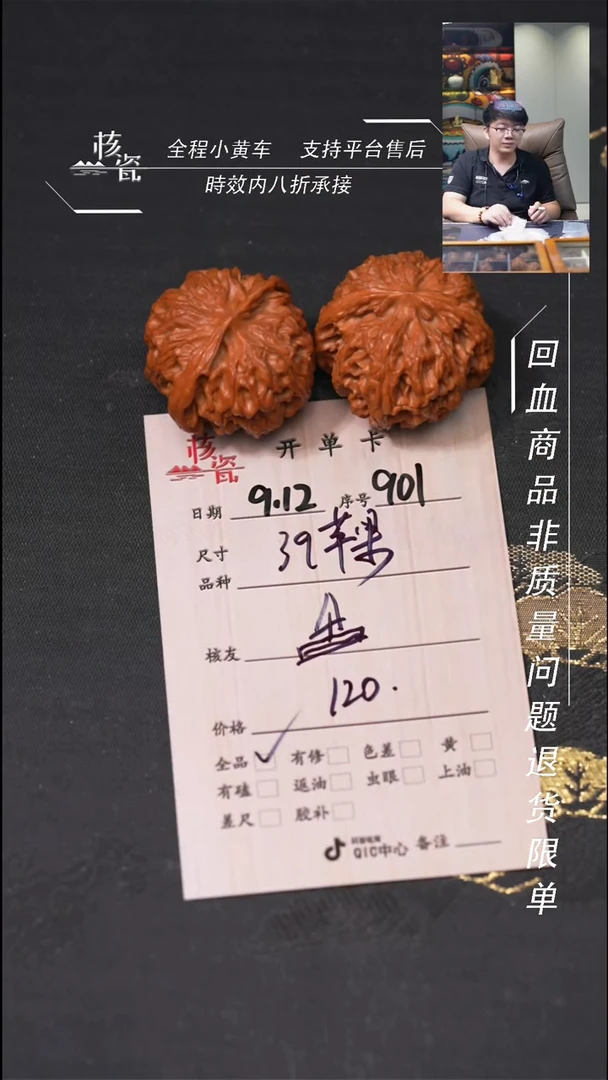 核瓷
全程小黄车 支持平台售后
時效内八折承接
回血商品非质量问题退货限单
核瓷
开单卡
日期 9.12 序号 901
尺寸
品种 39苹果
核友
价格 120.
全品 ✓ 有修 色差 黄
有磕 返油 虫眼 上油
差尺 胶补
QIC中心 备注